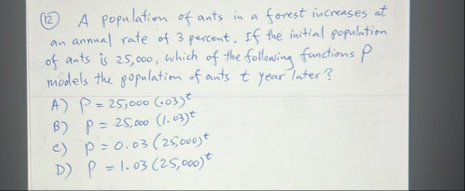 (12) A population of ants in a forest increases at
an annual rate of 3 percent. If the initial population
of ants is 25,000, which of the following functions P
models the population of ants t year later?
A) P = 25,000 (.03)^t
B) P = 25,000 (1.03)^t
c) P = 0.03 (25,000)^t
D) P = 1.03 (25,000)^t